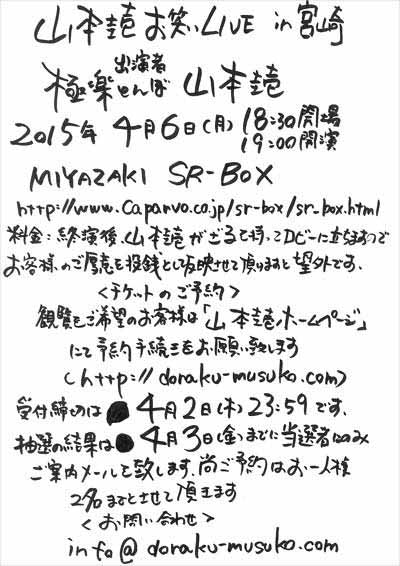 山本圭壱お笑いLIVE in 宮崎
出演者
極楽とんぼ 山本圭壱
2015年 4月6日(月) 18:30開場
19:00開演
MIYAZAKI SR-BOX
http://www.caparvo.co.jp/sr-box/sr_box.html
料金:終演後、山本圭壱がざるを持ってロビーに立ちますので
お客様のご厚志を投銭として反映させて頂けますと望外です。
<チケットのご予約>
観覧をご希望のお客様は「山本圭壱ホームページ」
にて予約手続きをお願い致します
(http://doraku-musuko.com)
受付締切は●4月2日(木)23:59です、
抽選の結果は●4月3日(金)までに当選者にのみ
ご案内メールを致します、尚ご予約はお一人様
2名までとさせて頂きます
<お問い合わせ>
info@doraku-musuko.com